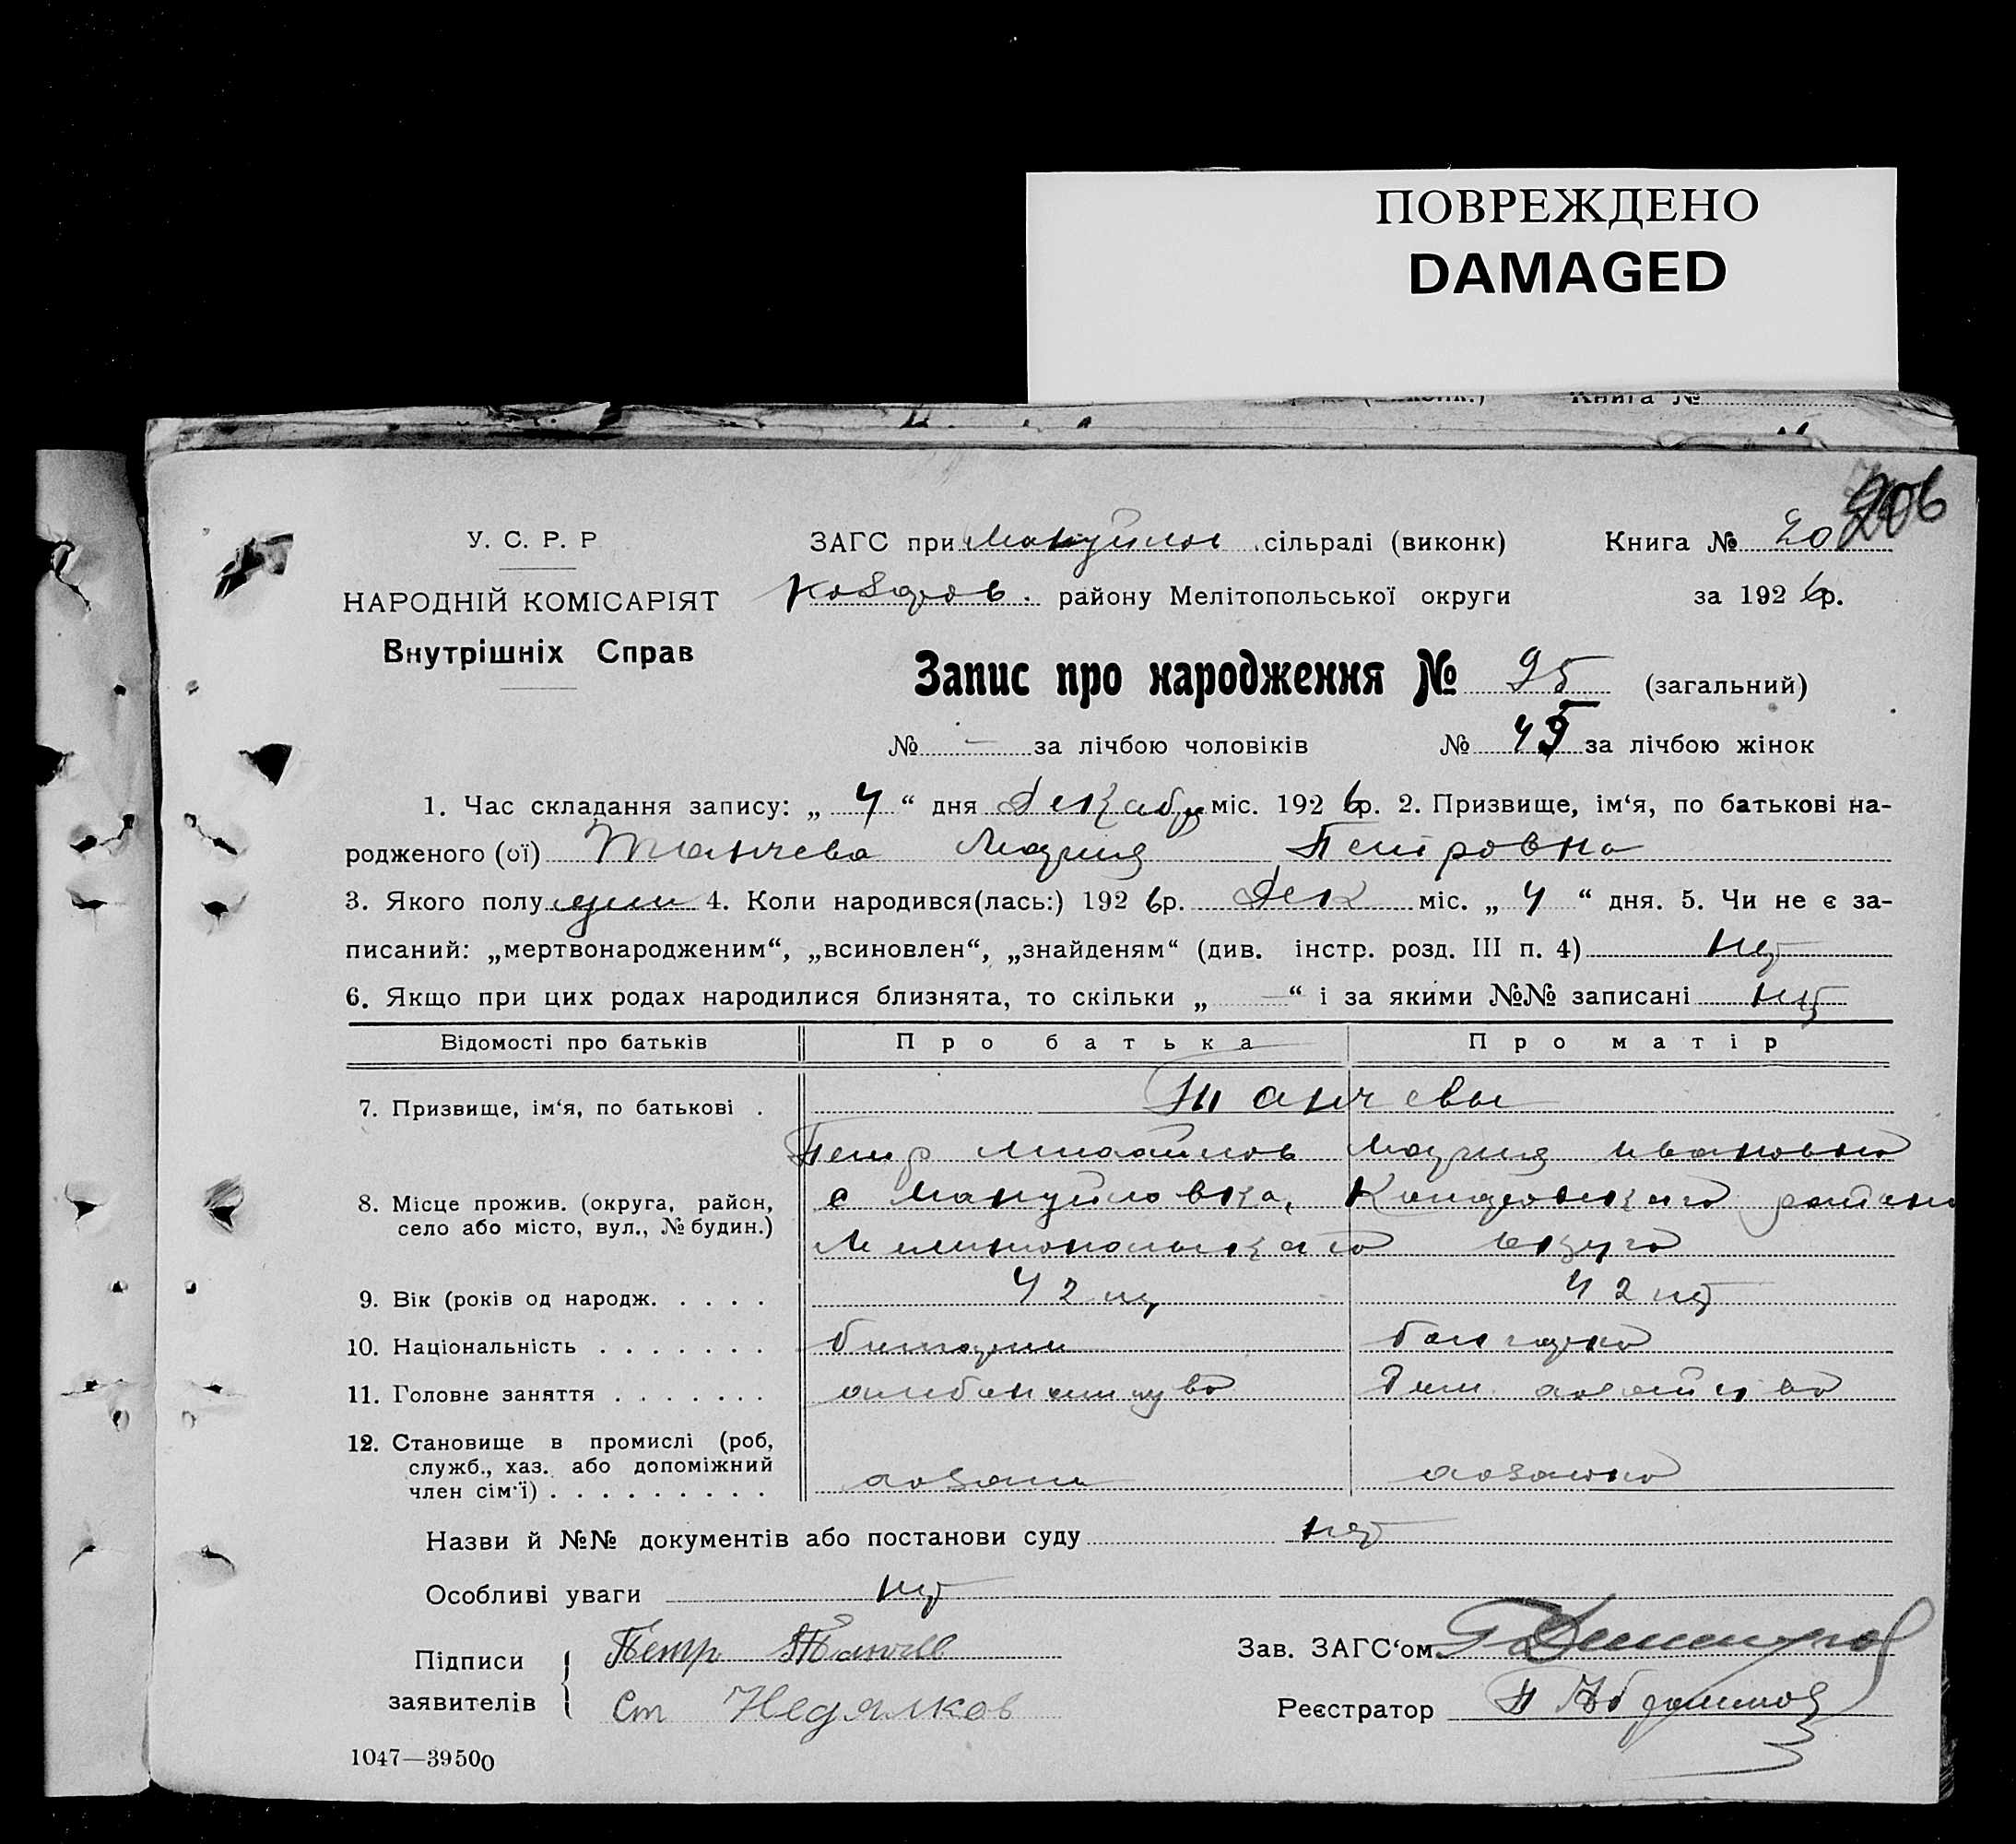 ПОВРЕЖДЕНО
DAMAGED
Книга №
206
У. С. Р. Р
ЗАГС при Мануйлов сільраді (виконк) Книга № 20
НАРОДНІЙ КОМІСАРІЯТ
району Мелітопольської округи за 1926р.
Внутрішніх Справ
Запис про народження № 95 (загальний)
№ — за лічбою чоловіків № 45 за лічбою жінок
1. Час складання запису: „ 4 “ дня Декабря міс. 1926р. 2. Призвище, ім‘я, по батькові на-
родженого (ої) Танчева Мария Петровна
3. Якого полу 4. Коли народився(лась:) 1926р. Дек міс. „ 4 “ дня. 5. Чи не є за-
писаний: „мертвонародженим“, „всиновлен“, „знайденям“ (див. інстр. розд. III п. 4) нет
6. Якщо при цих родах народилися близнята, то скільки „ — “ і за якими №№ записані нет
Відомості про батьків Про батька Про матір
7. Призвище, ім‘я, по батькові . Танчевы
Петр Михайлов Мария Ивановна
8. Місце прожив. (округа, район, село або місто, вул., № будин.) с Мануйловка, района
Мелитопольского округа
9. Вік (років од народж. . . . . 42 лет 42 лет
10. Національність . . . . . . . болгарин болгарка
11. Головне заняття . . . . . . . хлебопашество Дом. хозяйство
12. Становище в промислі (роб,
служб., хаз. або допоміжний
член сім‘ї) . . . . . . . . . хозяин хозяйка
Назви й №№ документів або постанови суду нет
Особливі уваги нет
Підписи заявителів Петр Танчев
Ст Недялков
Зав. ЗАГС‘ом
Реєстратор
1047—39500